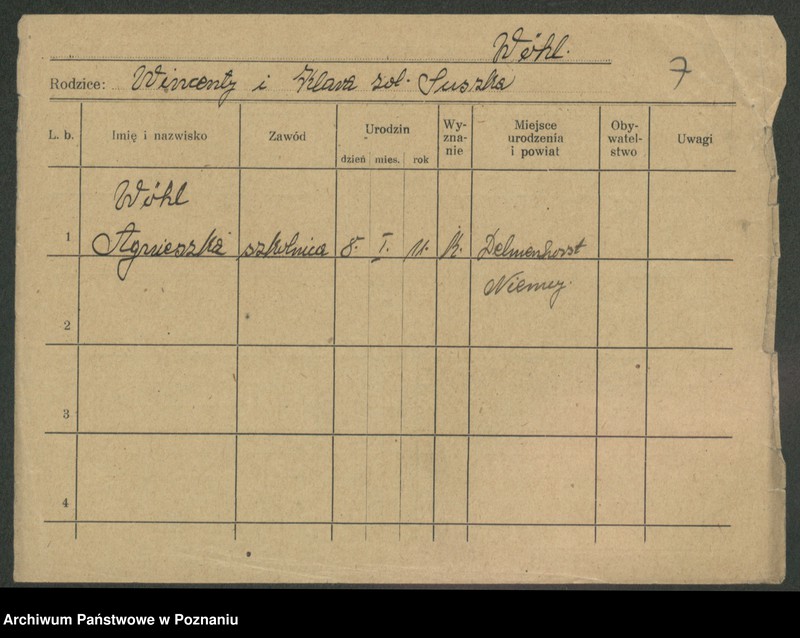 Wóhl.
Rodzice: Wincenty i Klara zol. Suszka
7
L. b. Imię i nazwisko Zawód Urodzin dzień mies. rok Wy-zna-nie Miejsce urodzenia i powiat Oby-watel-stwo Uwagi
Wóhl
1 Agnieszka szkolnica 8. I. 11. k. Delmenhorst
Niemcy.
2
3
4
Archiwum Państwowe w Poznaniu